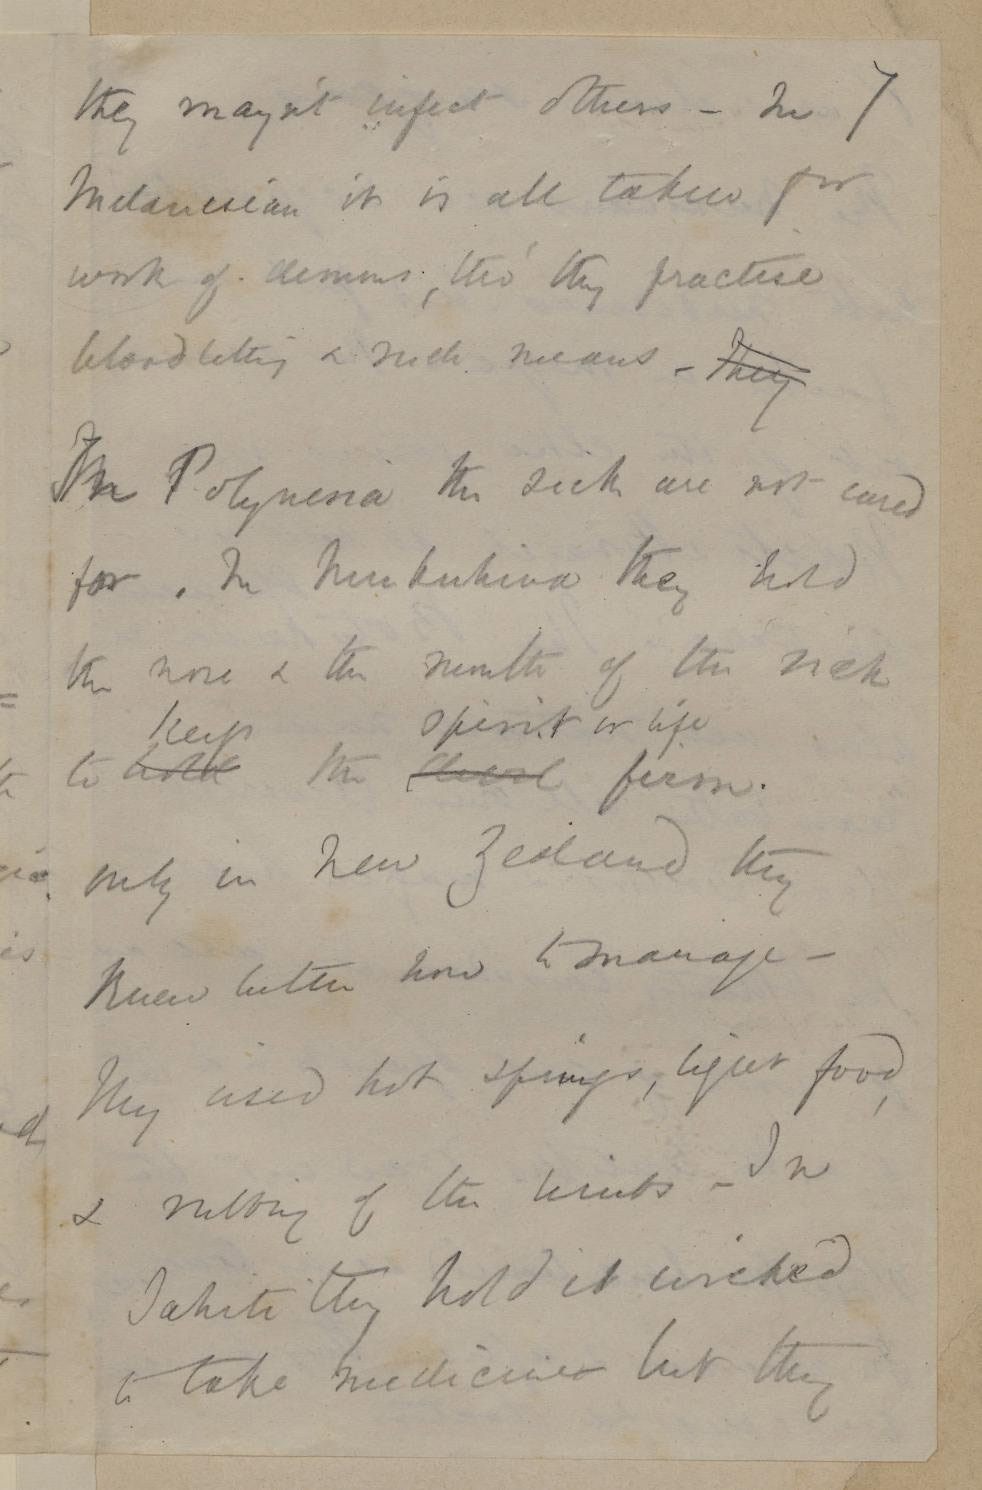 they mayn't infect others – In 7
Melanesian it is all taken for
work of demons, tho' they practise
bloodletting & such means – They
In Polynesia the sick are not cared
for. In Neukuhiva they hold
the nose & the mouth of the sick
keep spirit or life
to hold the firm.
only in New Zealand they
knew better how to manage –
They used hot springs, light food,
& rubbing of the limbs – In
Tahiti they hold it wicked
to take medicines but they